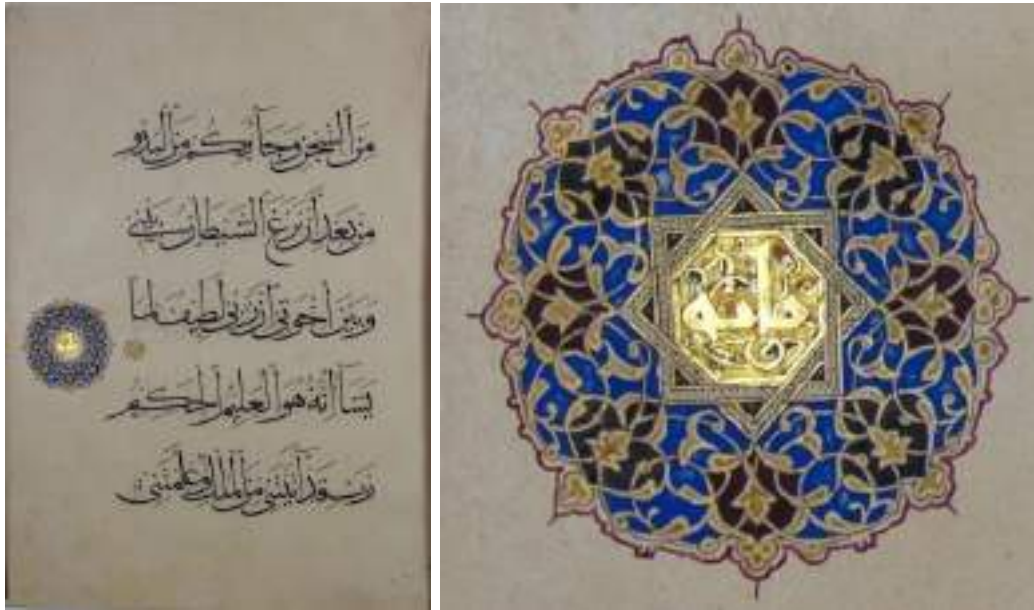 مِنَ السِّجْنِ وَجَآءَ بِكُم مِّنَ الْبَدْوِ
مِن بَعْدِ أَن نَّزَغَ الشَّيْطَانُ بَيْنِي
وَبَيْنَ إِخْوَتِي إِنَّ رَبِّي لَطِيفٌ لِّمَا
يَشَآءُ إِنَّهُ هُوَ الْعَلِيمُ الْحَكِيمُ
رَبِّ قَدْ آتَيْتَنِي مِنَ الْمُلْكِ وَعَلَّمْتَنِي
مايه